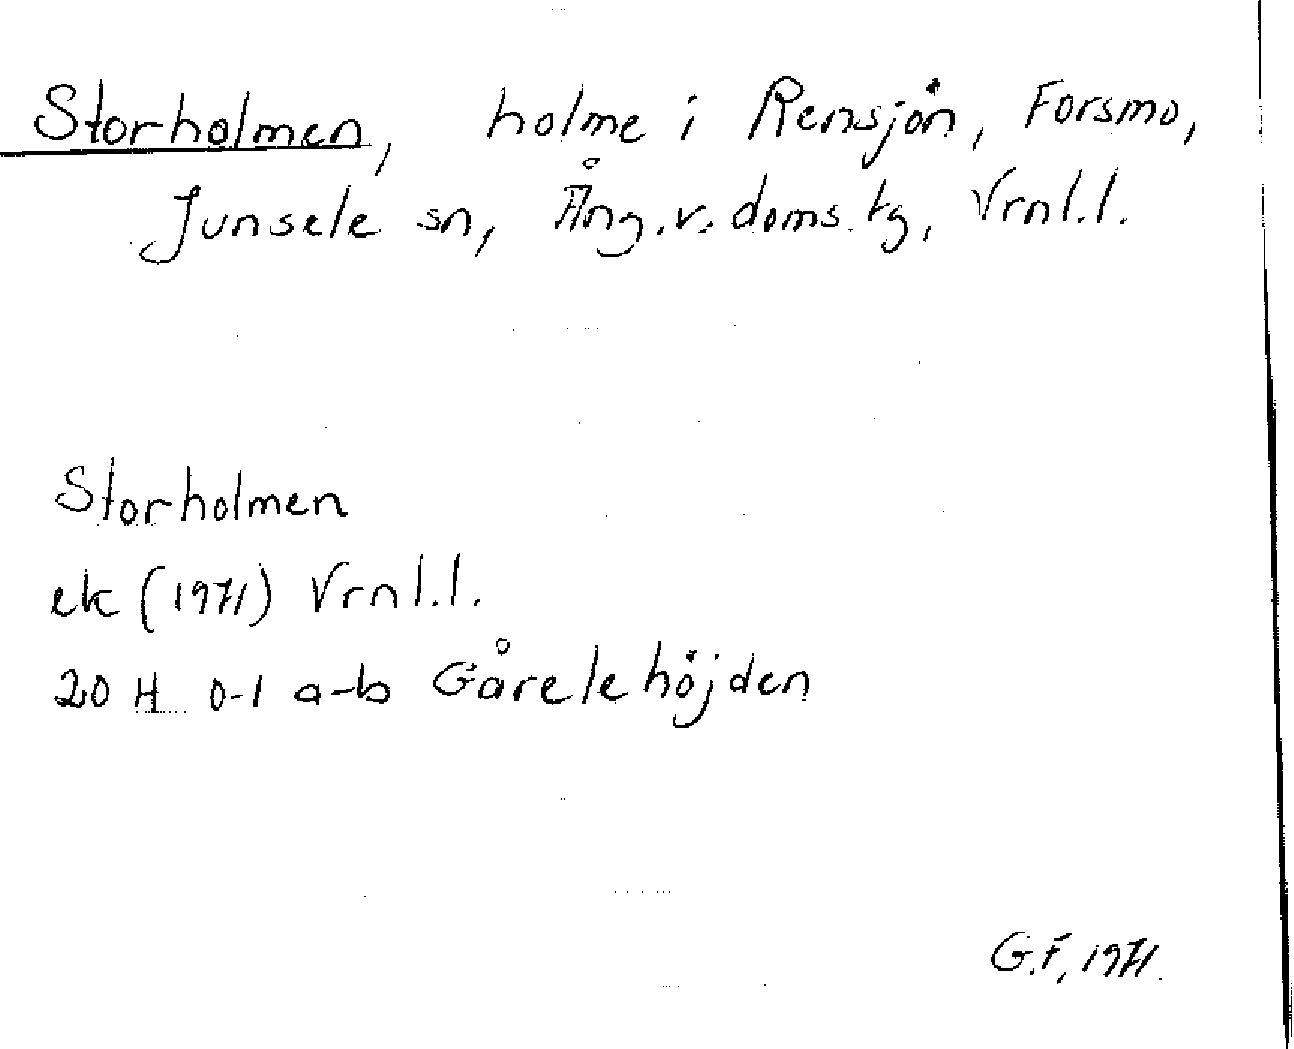 Storholmen, holme i Rensjön, Forsmo,
Junsele sn, Ång.v.doms.tg, Vrnl.l.
Storholmen
ek (1971) Vrnl.l.
20 H 0-1 a-b Gårelehöjden
G.F, 1971.